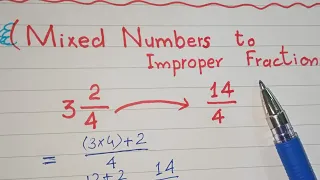 Mixed Numbers to
Improper Fraction
3 2/4 → 14/4
= (3×4)+2/4
12+2 14